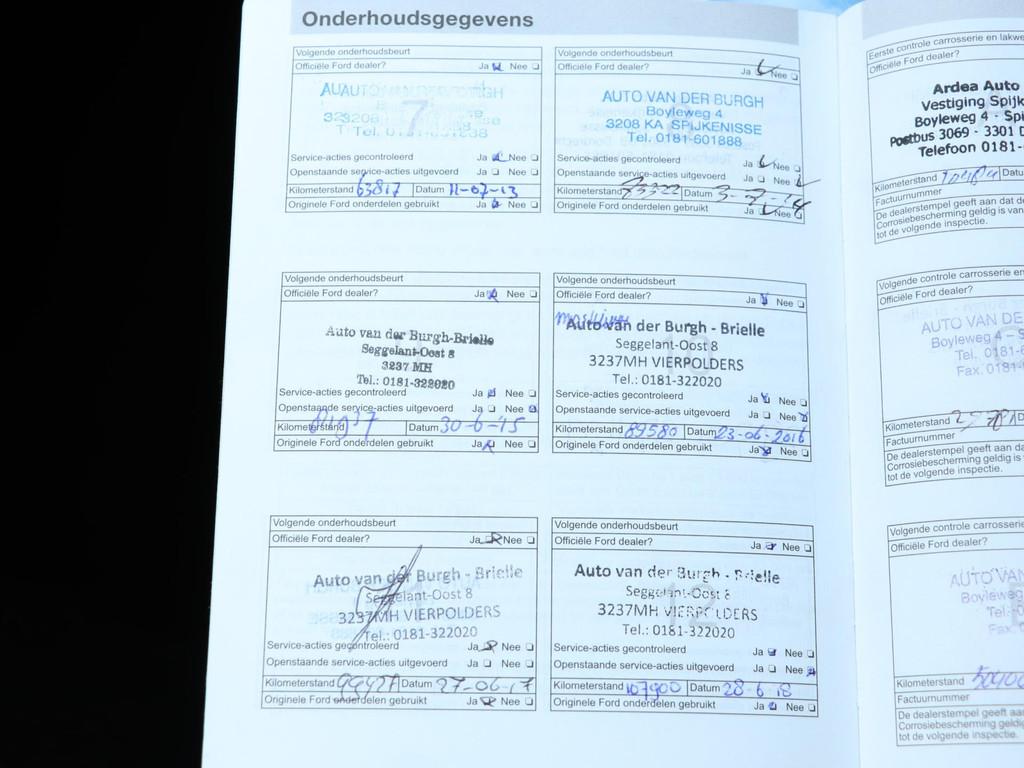 Onderhoudsgegevens
Volgende onderhoudsbeurt
Officiële Ford dealer? Ja Nee
Tel.
Service-acties gecontroleerd Ja Nee
Openstaande service-acties uitgevoerd Ja Nee
Kilometerstand 63817 Datum 11-07-13
Originele Ford onderdelen gebruikt Ja Nee
Volgende onderhoudsbeurt
Officiële Ford dealer? Ja Nee
AUTO VAN DER BURGH
Boyleweg 4
3208 KA SPIJKENISSE
Tel. 0181-601888
Service-acties gecontroleerd Ja Nee
Openstaande service-acties uitgevoerd Ja Nee
Kilometerstand 73322 Datum
Originele Ford onderdelen gebruikt Ja Nee
Volgende onderhoudsbeurt
Officiële Ford dealer? Ja Nee
Auto van der Burgh-Brielle
Seggelant-Oost 8
3237 MH
Tel.: 0181-322020
Service-acties gecontroleerd Ja Nee
Openstaande service-acties uitgevoerd Ja Nee
Kilometerstand Datum 30-6-'15
Originele Ford onderdelen gebruikt Ja Nee
Volgende onderhoudsbeurt
Officiële Ford dealer? Ja Nee
Auto van der Burgh - Brielle
Seggelant-Oost 8
3237MH VIERPOLDERS
Tel.: 0181-322020
Service-acties gecontroleerd Ja Nee
Openstaande service-acties uitgevoerd Ja Nee
Kilometerstand 89580 Datum 23-06-2016
Originele Ford onderdelen gebruikt Ja Nee
Volgende onderhoudsbeurt
Officiële Ford dealer? Ja Nee
Auto van der Burgh - Brielle
Seggelant-Oost 8
3237MH VIERPOLDERS
Tel.: 0181-322020
Service-acties gecontroleerd Ja Nee
Openstaande service-acties uitgevoerd Ja Nee
Kilometerstand 99427 Datum 27-06-17
Originele Ford onderdelen gebruikt Ja Nee
Volgende onderhoudsbeurt
Officiële Ford dealer? Ja Nee
Auto van der Burgh - Brielle
Seggelant-Oost 8
3237MH VIERPOLDERS
Tel.: 0181-322020
Service-acties gecontroleerd Ja Nee
Openstaande service-acties uitgevoerd Ja Nee
Kilometerstand 107900 Datum 28-6-18
Originele Ford onderdelen gebruikt Ja Nee
Eerste controle carrosserie en lakwe
Officiële Ford dealer?
Ardea Auto
Vestiging Spijk
Boyleweg 4 - Spi
Postbus 3069 - 3301 D
Telefoon 0181-
Kilometerstand Datu
Factuurnummer
De dealerstempel geeft aan dat de
Corrosiebescherming geldig is van
tot de volgende inspectie.
Volgende controle carrosserie en
Officiële Ford dealer?
AUTO VAN DE
Boyleweg 4 – S
Tel. 0181-6
Fax. 0181-
Kilometerstand
Factuurnummer
De dealerstempel geeft aan da
Corrosiebescherming geldig is
tot de volgende inspectie.
Volgende controle carrosserie
Officiële Ford dealer?
AUTO VAN
Boyleweg
Tel.
Fax.
Kilometerstand
Factuurnummer
De dealerstempel geeft aa
Corrosiebescherming geldig
tot de volgende inspectie.